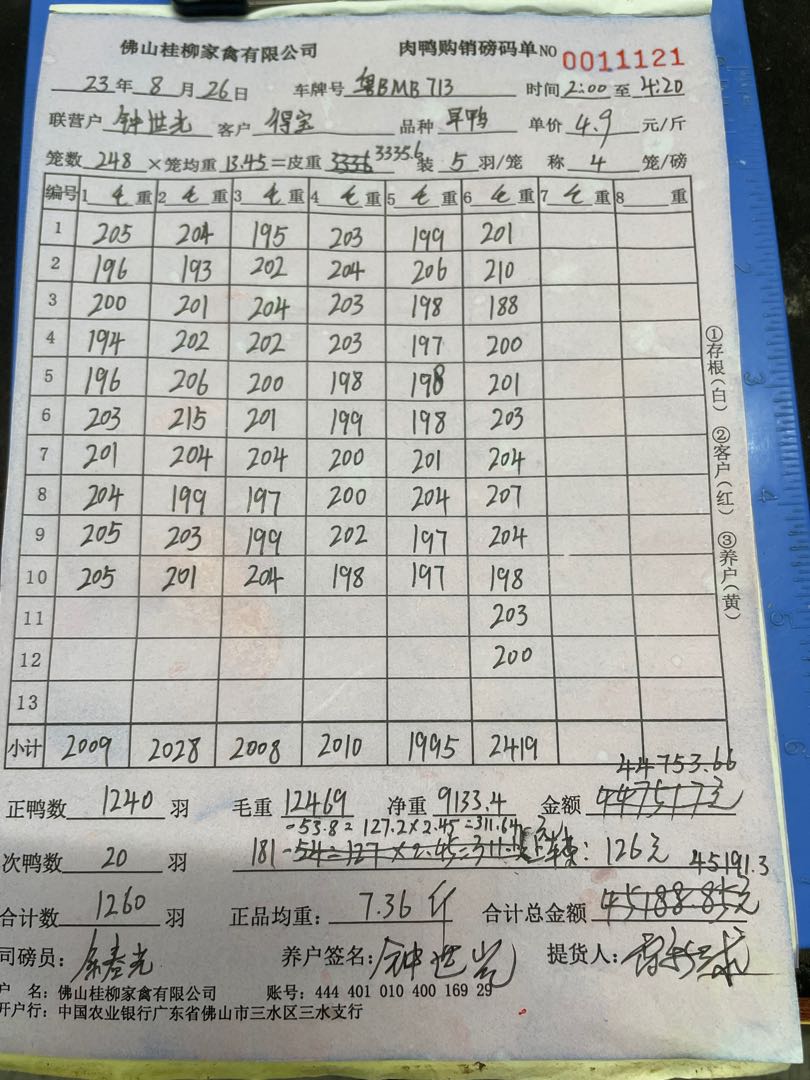 佛山桂柳家禽有限公司 肉鸭购销磅码单 NO 0011121
23年 8月 26日 车牌号 粤BMB713 时间 2:00 至 4:20
联营户 钟世光 客户 得宝 品种 旱鸭 单价 4.9 元/斤
笼数 248 ×笼均重 13.45 =皮重 3336 3335.6 装 5 羽/笼 称 4 笼/磅
编号 1 毛 重 2 毛 重 3 毛 重 4 毛 重 5 毛 重 6 毛 重 7 毛 重 8 重
1 205 204 195 203 199 201
2 196 193 202 204 206 210
3 200 201 204 203 198 188
4 194 202 202 203 197 200
5 196 206 200 198 198 201
6 203 215 201 199 198 203
7 201 204 204 200 201 204
8 204 199 197 200 204 207
9 205 203 199 202 197 204
10 205 201 204 198 197 198
11 203
12 200
13
小计 2009 2028 2008 2010 1995 2419
44753.66
正鸭数 1240 羽 毛重 12469 净重 9133.4 金额 44751.7元
-53.8= 127.2×2.45=311.64元
次鸭数 20 羽 181 -54=127×2.45=311 上车: 126元 45191.3
合计数 1260 羽 正品均重: 7.36 斤 合计总金额 45188.85元
司磅员: 养户签名: 提货人:
户 名: 佛山桂柳家禽有限公司 账号: 444 401 010 400 169 29
开户行: 中国农业银行广东省佛山市三水区三水支行
①存根(白) ②客户(红) ③养户(黄)